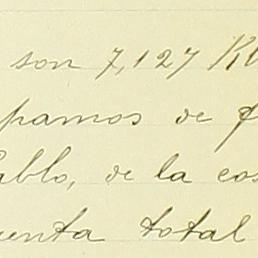 son 7,127 K
pamos de
ablo, de la cos
uenta total